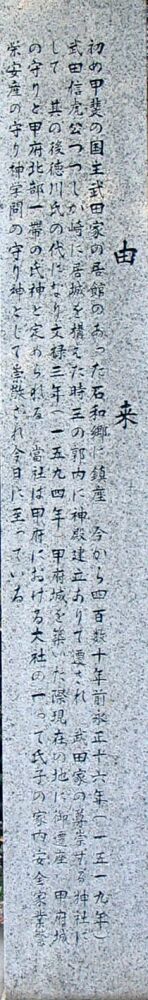 由来
初め甲斐の国主武田家の居館のあった石和郷に鎮座 今から四百数十年前永正十六年(一五一九年)
武田信虎公つつじが崎に居城を構えた時三の郭内に神殿建立ありて遷され 武田家の尊崇する神社に
して 其の後徳川氏の代になり文禄三年(一五九四年)甲府城を築いた際現在の地に御遷座 甲府城
の守りと甲府北部一帯の氏神と定められる 当社は甲府における大社の一つで氏子の家内安全家業繁
栄安産の守り神学問の守り神として崇敬され今日に至っている